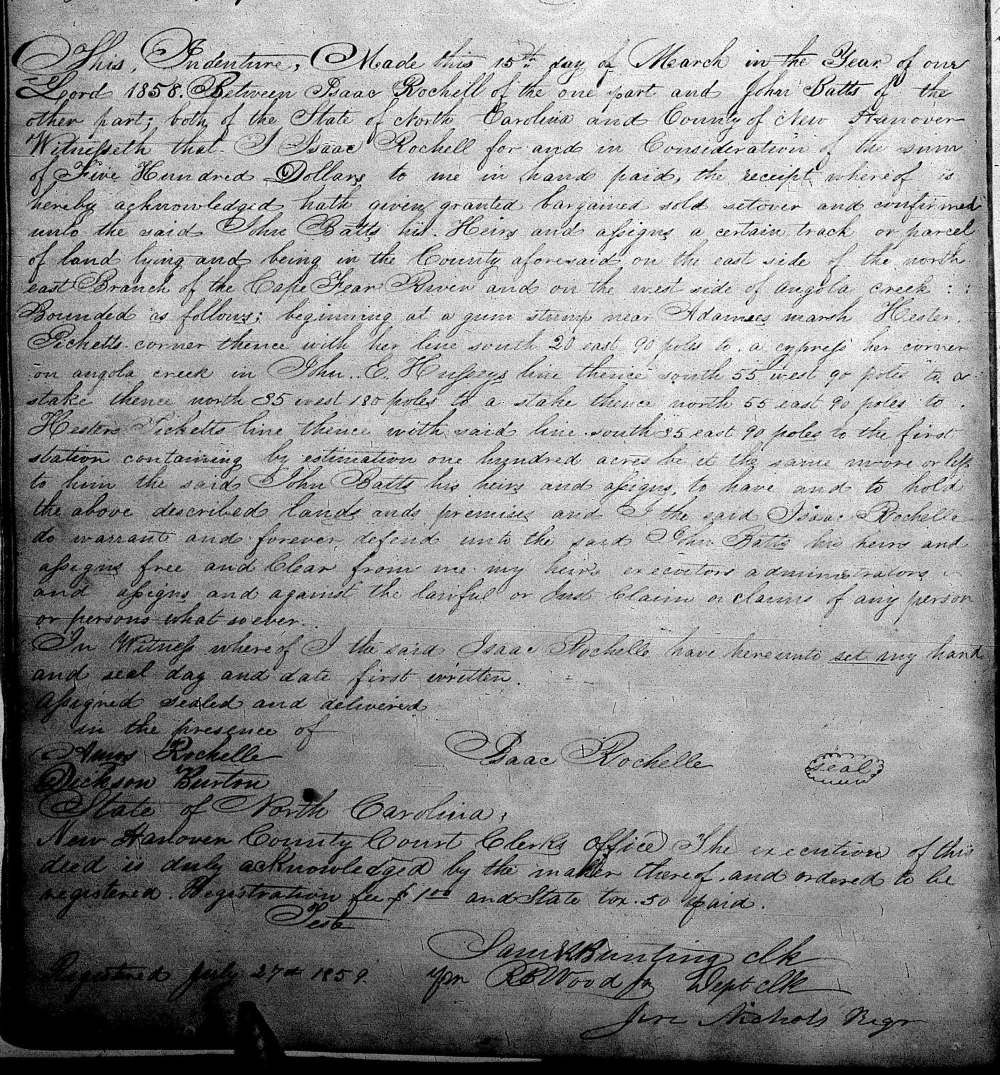 This, Indenture, Made this 15th day of March in the Year of our
Lord 1858. Between Isaac Rochell of the one part and John Batts of the
other part; both of the State of North Carolina and County of New Hanover
Witnesseth that I Isaac Rochell for and in Consideration of the sum
of Five Hundred Dollars to me in hand paid, the receipt whereof is
hereby acknowledged hath given granted bargained sold setover and confirmed
unto the said John Batts his Heirs and assigns a certain track or parcel
of land lying and being in the County aforesaid on the east side of the north
east Branch of the Cape Fear River and on the west side of angola creek : :
Bounded as follows; beginning at a gum stump near Adamses marsh Hester
Picketts corner thence with her line south 20 east 90 poles to a cypress her corner
on angola creek in John. E. Husseys line thence south 55 west 90 poles to a
stake thence north 35 west 180 poles to a stake thence north 55 east 90 poles to
Hesters Picketts line thence with said line south 35 east 90 poles to the first
station containing by estimation one hundred acres be it the same more or less
to him the said John Batts his heirs and assigns, to have and to hold
the above described lands ands premises and I the said Isaac Rochelle
do warrant and forever defend unto the said John Batts his heirs and
assigns free and Clear from me my heirs executors administrators
and assigns and against the lawful or Just Claim or claims of any person
or persons what so ever.
In Witness where of I the said Isaac Rochelle have hereunto set my hand
and seal day and date first written.
Assigned sealed and delivered
in the presence of
Amos Rochelle
Isaac Rochelle seal
Dickson Burton
State of North Carolina,
New Hanover County Court Clerks office The execution of this
deed is duly acknowledged by the maker thereof, and ordered to be
registered. Registration fee $1 00 and State tax .50 paid.
Teste
Saml R Bunting clk
Registered July 27th 1859. pr R B Wood jr Dept clk
Jere Nichols Regr